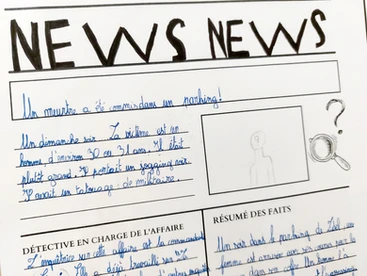 NEWS NEWS
Un meurtre a été commis dans un parking!
Un dimanche soir. La victime est un
homme, d'environ 30 ou 31 ans. Il était
plutôt grand. Il portait un jogging noir.
Il avait un tatouage de militaire.
?
DÉTECTIVE EN CHARGE DE L'AFFAIRE
L'enquêtrice sur cette affaire est la commandante
Elle a déjà travaillé sur
RÉSUMÉ DES FAITS
Un soir dans le parking de
femme est
Un homme l'a